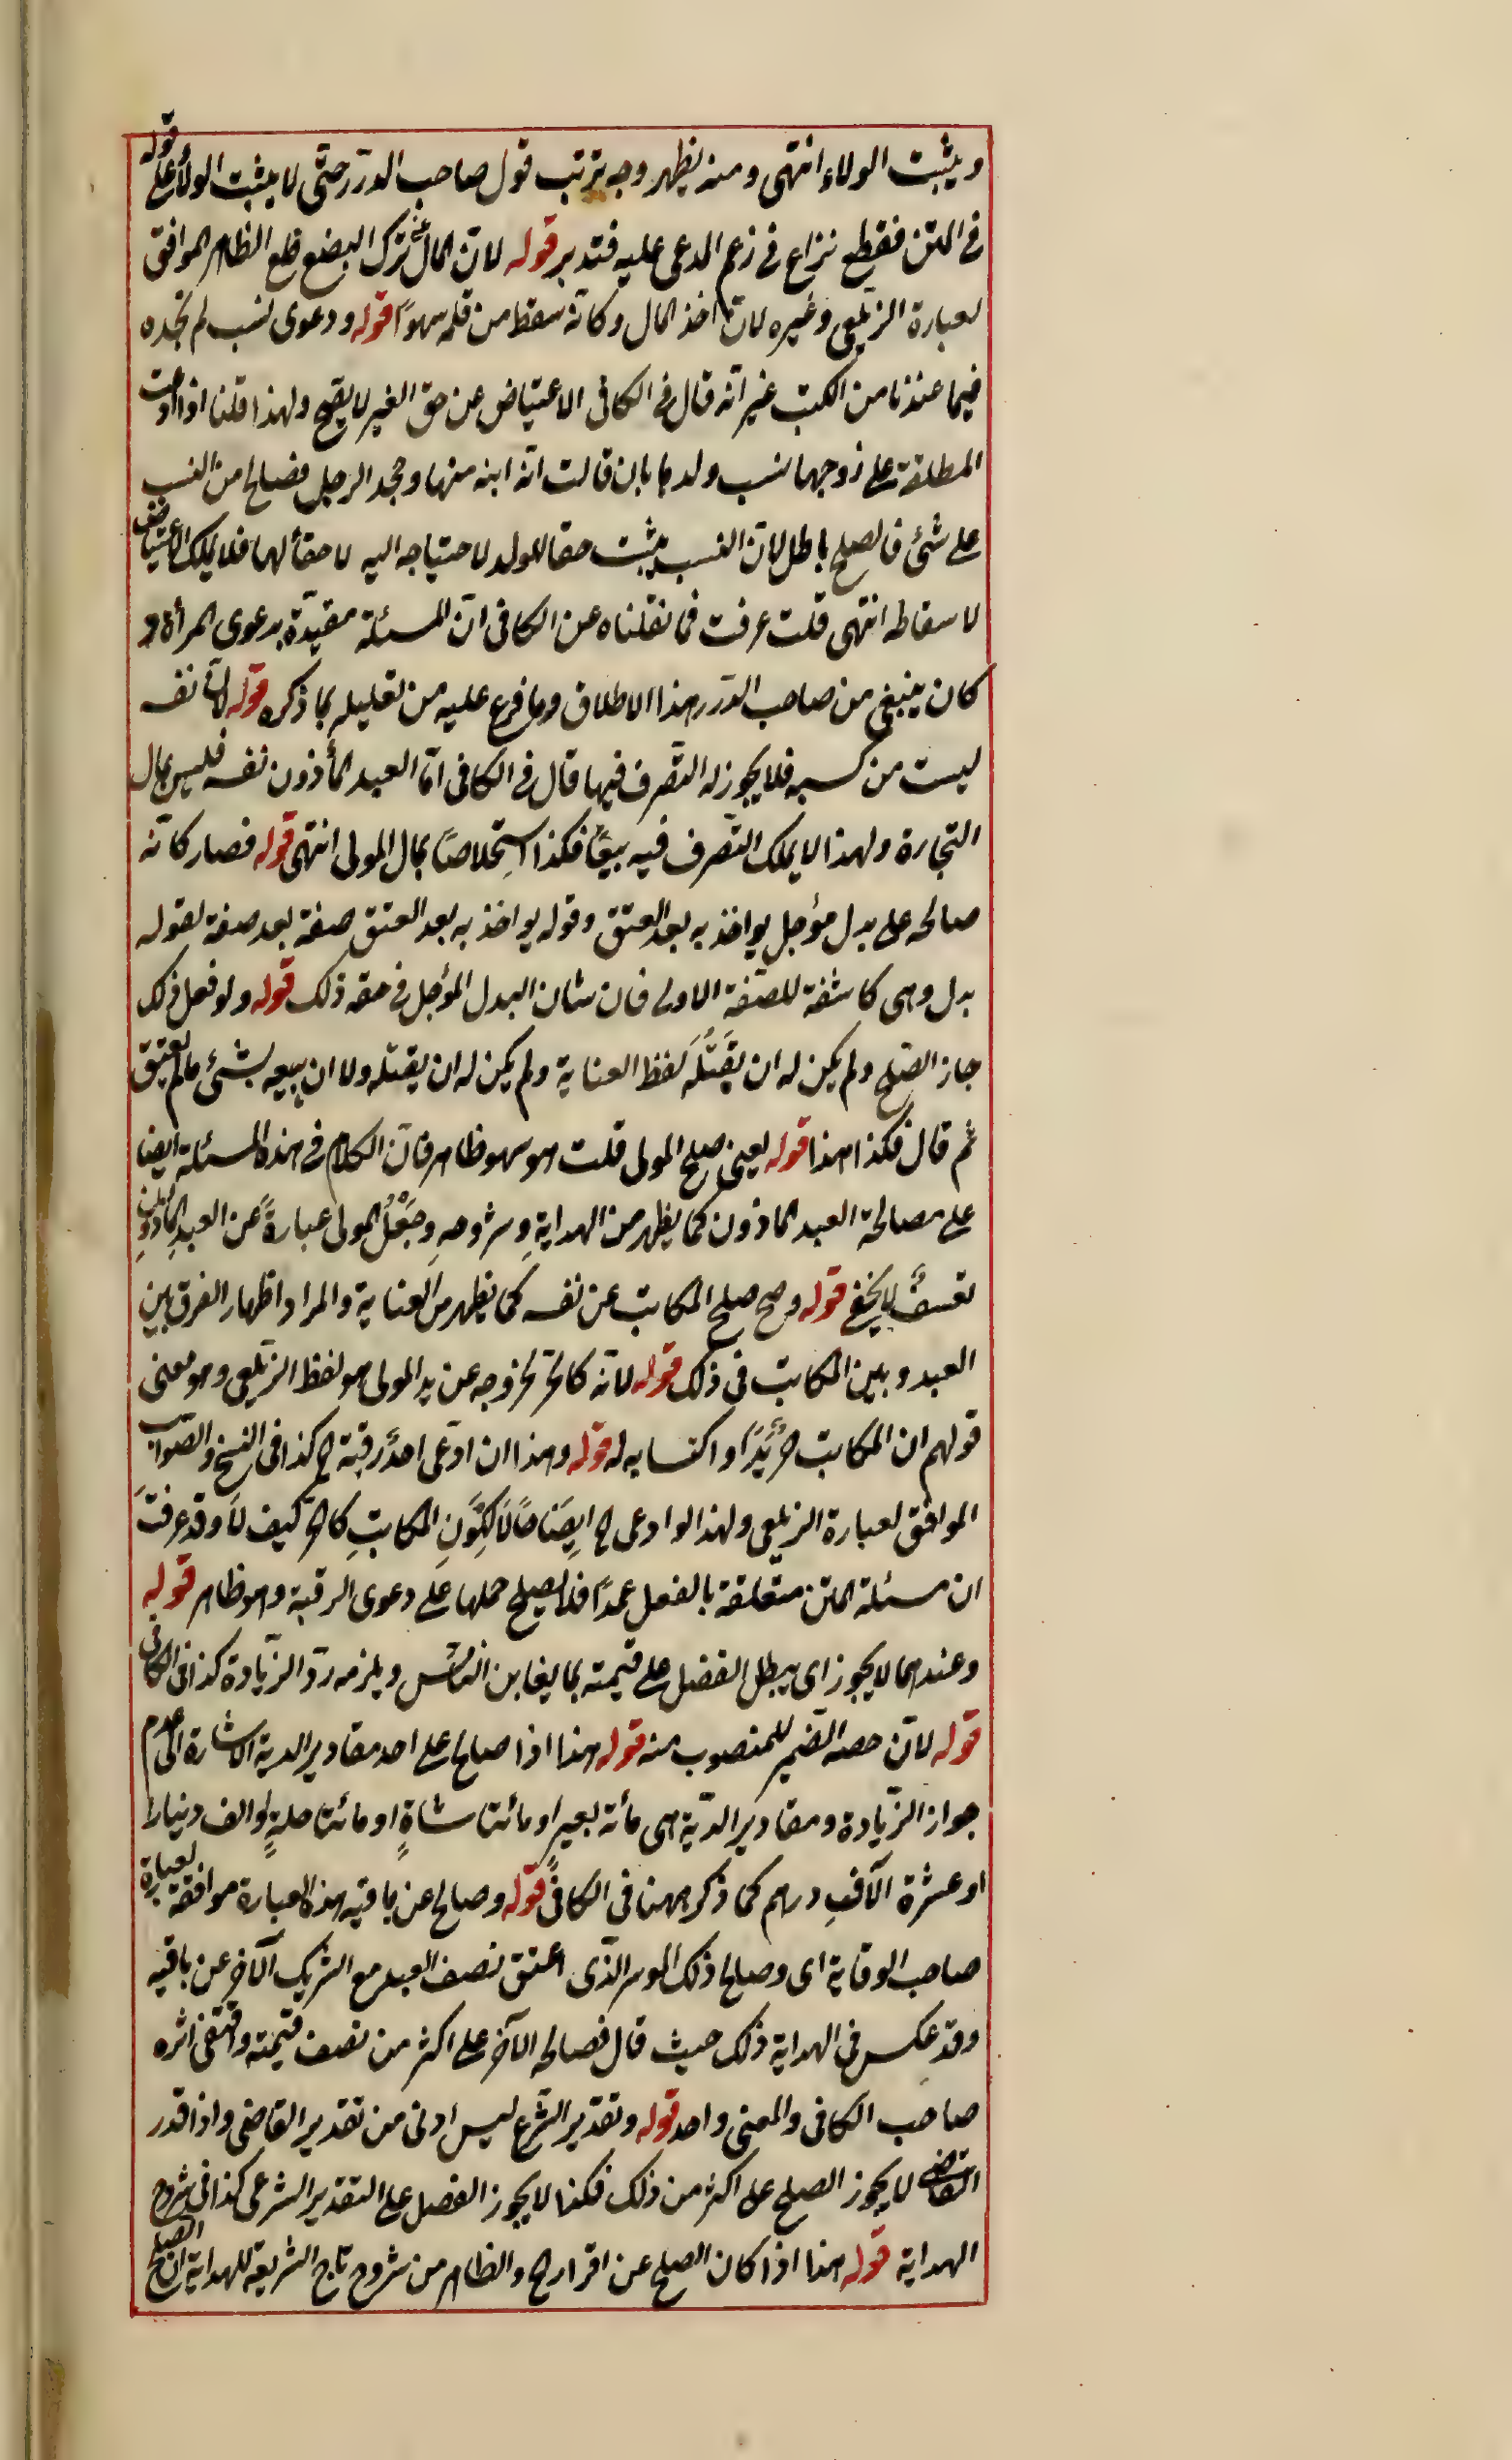 ويثبت الولاء انتهى ومنه يظهر وجه ترتب قول صاحب الدرر حتى لا يثبت الولاء على قوله
في المتن فقطع نزاع في زعم المدعى عليه فتدبر قوله لان المال عن ترك البضع خلع الظاهر الموافق
لعبارة الزيلعي وغيره لان اخذ المال وكانه سقط من قلمه سهوا قوله ودعوى نسب لم نجده
فيما عندنا من الكتب غير انه قال في الكافى الاعتياض عن حق الغير لا يصح ولهذا قلنا اذا ادعت
المطلقة على زوجها نسب ولدها بان قالت انه ابنه منها وجحد الرجل فصالح من النسب
على شئ فالصلح باطل لان النسب يثبت حقا للولد لاحتياجه اليه لا حقا لها فلا يملك الاعتياض
لاسقاطه انتهى قلت عرفت مما نقلناه عن الكافى ان المسئلة مقيدة بدعوى المرأة و
كان ينبغي من صاحب الدرر هذا الاطلاق وما فرع عليه من تعليله بما ذكره قوله لان نفسه
ليست من كسبه فلا يجوز له التصرف فيها قال في الكافى اما العبد المأذون نفسه فليس بمال
التجارة ولهذا لا يملك التصرف فيه بيعا فكذا استخلاصا بمال المولى انتهى قوله فصار كانه
صالحه على بدل مؤجل يواخذ به بعد العتق وقوله يواخذ به بعد العتق صفة بعد صفة لقوله
بدل وهى كاشفة للصفة الاولى فان شان البدل المؤجل في حقه ذلك قوله ولو فعل ذلك
جاز الصلح ولم يكن له ان يقتله لفظ العناية ولم يكن له ان يقتله ولا ان يبيعه بشئ مالم يعتق
ثم قال فكذا هذا قوله يعنى صلح المولى قلت هو سهو ظاهر فان الكلام في هذه المسئلة ايضا
على مصالحة العبد الماذون كما يظهر من الهداية وشروحه وجعل المولى عبارة عن العبد الماذون
تعسف لا يخفى قوله وصح صلح المكاتب عن نفسه كما يظهر من العناية والمراد اظهار الفرق بين
العبد وبين المكاتب في ذلك قوله لانه كالحر لخروجه عن يد المولى هو لفظ الزيلعي وهو معنى
قولهم ان المكاتب حر يدا واكتسابه له قوله وهذا ان ادعى احد رقبته الخ كذا في النسخ والصواب
الموافق لعبارة الزيلعي ولهذا لو ادعى الخ ايضاحا لكون المكاتب كالحر كيف لا وقد عرفت
ان مسئلة المتن متعلقة بالفعل عمدا فلا يصلح حملها على دعوى الرقبة وهو ظاهر قوله
وعندهما لا يجوز اى يبطل الفضل على قيمته بما يغابن الناس ويلزمه رد الزيادة كذا فى الكافى
قوله لان حصه الضمير للمغصوب منه قوله هذا اذا صالح على احد مقادير الدية الاشارة الى عدم
جواز الزيادة ومقادير الدية هى مأة بعير او مائتا شاة او مائتا حلة او الف دينار
او عشرة آلاف درهم كما ذكر ههنا فى الكافى قوله وصالح عن باقيه هذه العبارة موافقة لعبارة
صاحب الوقاية اى وصالح ذلك الموسر الذى اعتق نصف العبد مع الشريك الآخر عن باقيه
وقد عكس فى الهداية ذلك حيث قال فصالحه الآخر على اكثر من نصف قيمته واقتفى اثره
صاحب الكافى والمعنى واحد قوله وتقدير الشرع ليس ادنى من تقدير القاضى واذا قدر
القاضى لا يجوز الصلح على اكثر من ذلك فكذا لا يجوز الفضل على التقدير الشرعى كذا فى شروح
الهداية قوله هذا اذا كان الصلح عن اقرار الخ والظاهر من شروح تاج الشريعة للهداية ان الصلح